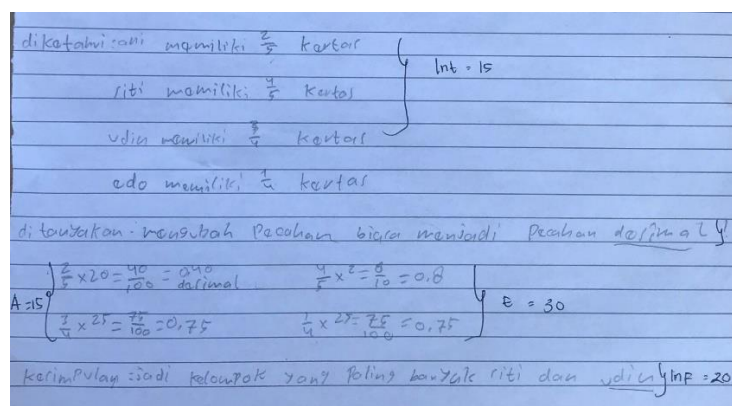 diketahui : ani memiliki 2/5 kertas
Int = 15
siti memiliki 4/5 kertas
udin memiliki 3/4 kertas
edo memiliki 1/4 kertas
ditanyakan : mengubah pecahan biasa menjadi pecahan desimal
2/5 x 20 = 40/100 = 0,40 desimal 4/5 x 2 = 8/10 = 0.8
A = 15 E = 30
3/4 x 25 = 75/100 = 0,75 1/4 x 25 = 75/100 = 0,75
kesimpulan : jadi kelompok yang paling banyak siti dan udin Inf = 20